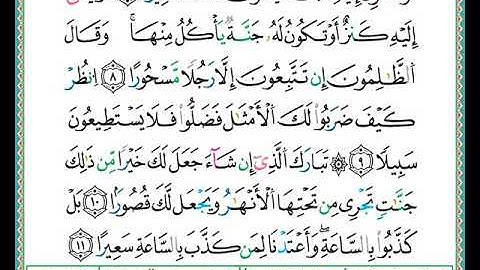 إِلَيْهِ كَنزٌ أَوْ تَكُونُ لَهُۥ جَنَّةٌ يَأْكُلُ مِنْهَا ۚ وَقَالَ
ٱلظَّٰلِمُونَ إِن تَتَّبِعُونَ إِلَّا رَجُلًا مَّسْحُورًا ٨ ٱنظُرْ
كَيْفَ ضَرَبُوا۟ لَكَ ٱلْأَمْثَٰلَ فَضَلُّوا۟ فَلَا يَسْتَطِيعُونَ
سَبِيلًا ٩ تَبَارَكَ ٱلَّذِىٓ إِن شَآءَ جَعَلَ لَكَ خَيْرًا مِّن ذَٰلِكَ
جَنَّٰتٍ تَجْرِى مِن تَحْتِهَا ٱلْأَنْهَٰرُ وَيَجْعَل لَّكَ قُصُورًا ١٠ بَلْ
كَذَّبُوا۟ بِٱلسَّاعَةِ ۖ وَأَعْتَدْنَا لِمَن كَذَّبَ بِٱلسَّاعَةِ سَعِيرًا ١١